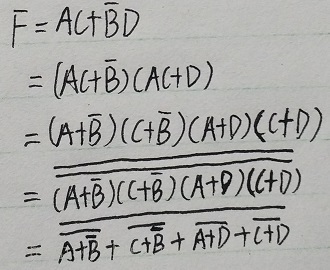 F = AC + B̅D
= (AC + B̅)(AC + D)
= (A + B̅)(C + B̅)(A + D)(C + D)
= (A + B̅)(C + B̅)(A + D)(C + D)
= A + B̅ + C + B̅ + A + D + C + D